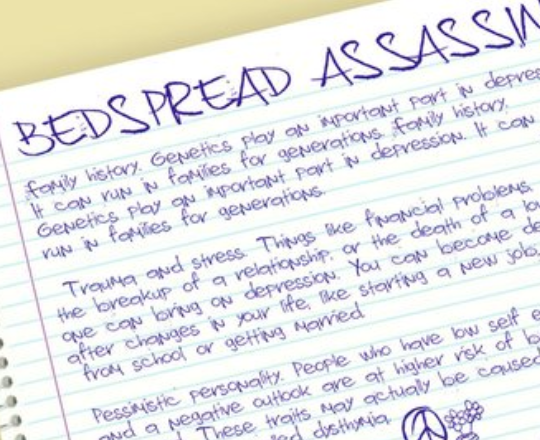 BEDSPREAD ASSASSIN
Family history. Genetics play an important part in depres
It can run in families for generations. Family history.
Genetics play an important part in depression. It can
run in families for generations.
Trauma and stress. Things like financial problems,
the breakup of a relationship, or the death of a lo
one can bring on depression. You can become de
after changes in your life, like starting a new job,
from school or getting married.
Pessimistic personality. People who have low self e
and a negative outlook are at higher risk of b
These traits may actually be caused
dysthymia.